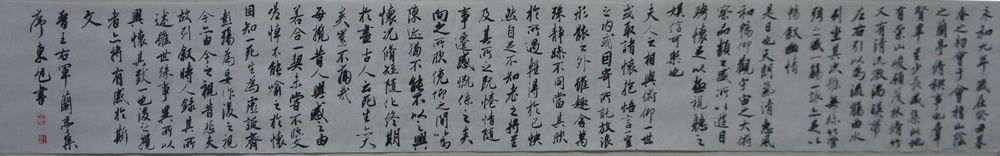 永和九年歲在癸丑暮
春之初會于會稽山陰
之蘭亭脩稧事也羣
賢畢至少長咸集此地
有崇山峻領茂林脩竹
又有清流激湍暎帶
左右引以為流觴曲水
列坐其次雖無絲竹管
弦之盛一觴一詠亦足以
暢敘幽情
是日也天朗氣清惠風
和暢仰觀宇宙之大俯
察品類之盛所以遊目
騁懷足以極視聽之
娛信可樂也
夫人之相與俯仰一世
或取諸懷抱悟言一室
之內或因寄所託放浪
形骸之外雖趣舍萬
殊靜躁不同當其欣
於所遇暫得於己快
然自足不知老之將至
及其所之既惓情隨
事遷感慨係之矣
向之所欣俛仰之間以為
陳迹猶不能不以之興
懷況脩短隨化終期
於盡古人云死生亦大
矣豈不痛哉
每攬昔人興感之由
若合一契未嘗不臨文
嗟悼不能喻之於懷
固知一死生為虛誕齊
彭殤為妄作後之視
今亦由今之視昔悲夫
故列敘時人錄其所
述雖世殊事異所以
興懷其致一也後之攬
者亦將有感於斯
文
晉王右軍蘭亭集
序 東旭書